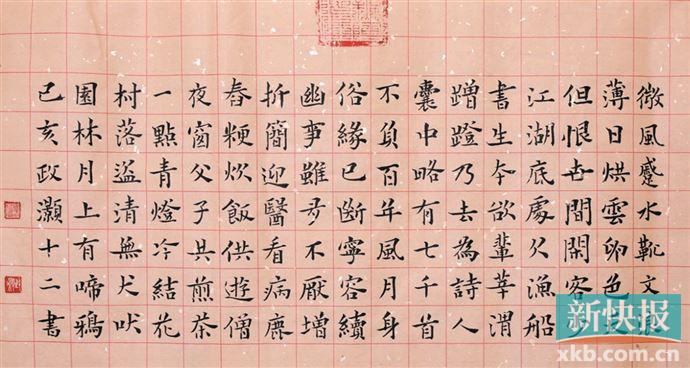 微風蹙水靴文
薄日烘雲卵色
但恨世間閑客
江湖底處欠漁船
書生本欲輩莘渭
蹭蹬乃去為詩人
囊中略有七千首
不負百年風月身
俗緣已斷寧容續
幽事雖多不厭增
折簡迎醫看病鹿
舂粳炊飯供遊僧
夜窗父子共煎茶
一點青燈冷結花
村落盜清無犬吠
園林月上有啼鴉
己亥政灝十二書
新快报
xkb.com.cn